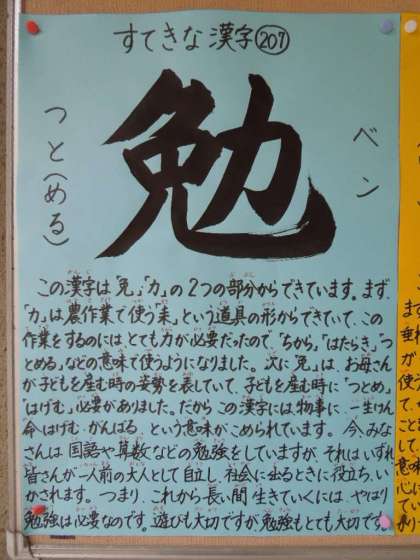 すてきな漢字 207
勉
ベン
つと(める)
この漢字は「免」「力」の2つの部分からできています。まず、
「力」は農作業で使う「耒」という道具の形からできていて、この
作業をするのにはとても力が必要だったので、「ちから」「はたらき」「つ
とめる」などの意味で使うようになりました。次に「免」は、お母さん
が子どもを産む時の姿勢を表していて、子どもを産む時に「つとめ」
「はげむ」必要がありました。だからこの漢字には物事に、一生けん
命、はげむ、がんばる、という意味がこめられています。今、みな
さんは国語や算数などの勉強をしていますが、それはいずれ
皆さんが一人前の大人として自立し、社会に出るときに役立ち、い
かされます。つまり、これから長い間生きていくには、やはり
勉強は必要なのです。遊びも大切ですが勉強もとても大切です。